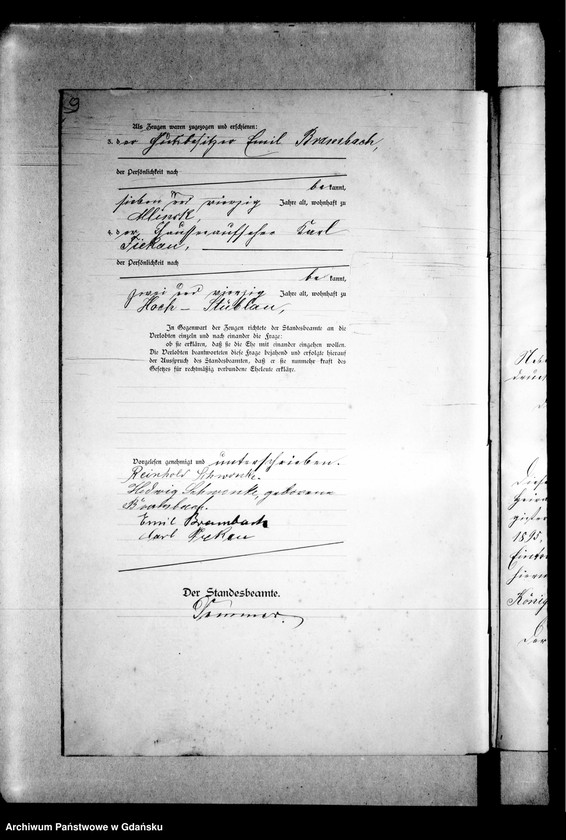 Als Zeugen waren zugezogen und erschienen:
3. der Gutsbesitzer Emil Brambach,
der Persönlichkeit nach
be kannt,
sieben und vierzig Jahre alt, wohnhaft zu
4. der Karl
der Persönlichkeit nach
be kannt,
zwei und vierzig Jahre alt, wohnhaft zu
Hoch-Stüblau,
In Gegenwart der Zeugen richtete der Standesbeamte an die
Verlobten einzeln und nach einander die Frage:
ob sie erklären, daß sie die Ehe mit einander eingehen wollen.
Die Verlobten beantworteten diese Frage bejahend und erfolgte hierauf
der Ausspruch des Standesbeamten, daß er sie nunmehr kraft des
Gesetzes für rechtmäßig verbundene Eheleute erkläre.
Vorgelesen genehmigt und unterschrieben.
Reinhold Schwenke.
Hedwig Schwenke, geborene
Brambach.
Emil Brambach
Karl
Der Standesbeamte.
1895.
König
Der
Archiwum Państwowe w Gdańsku